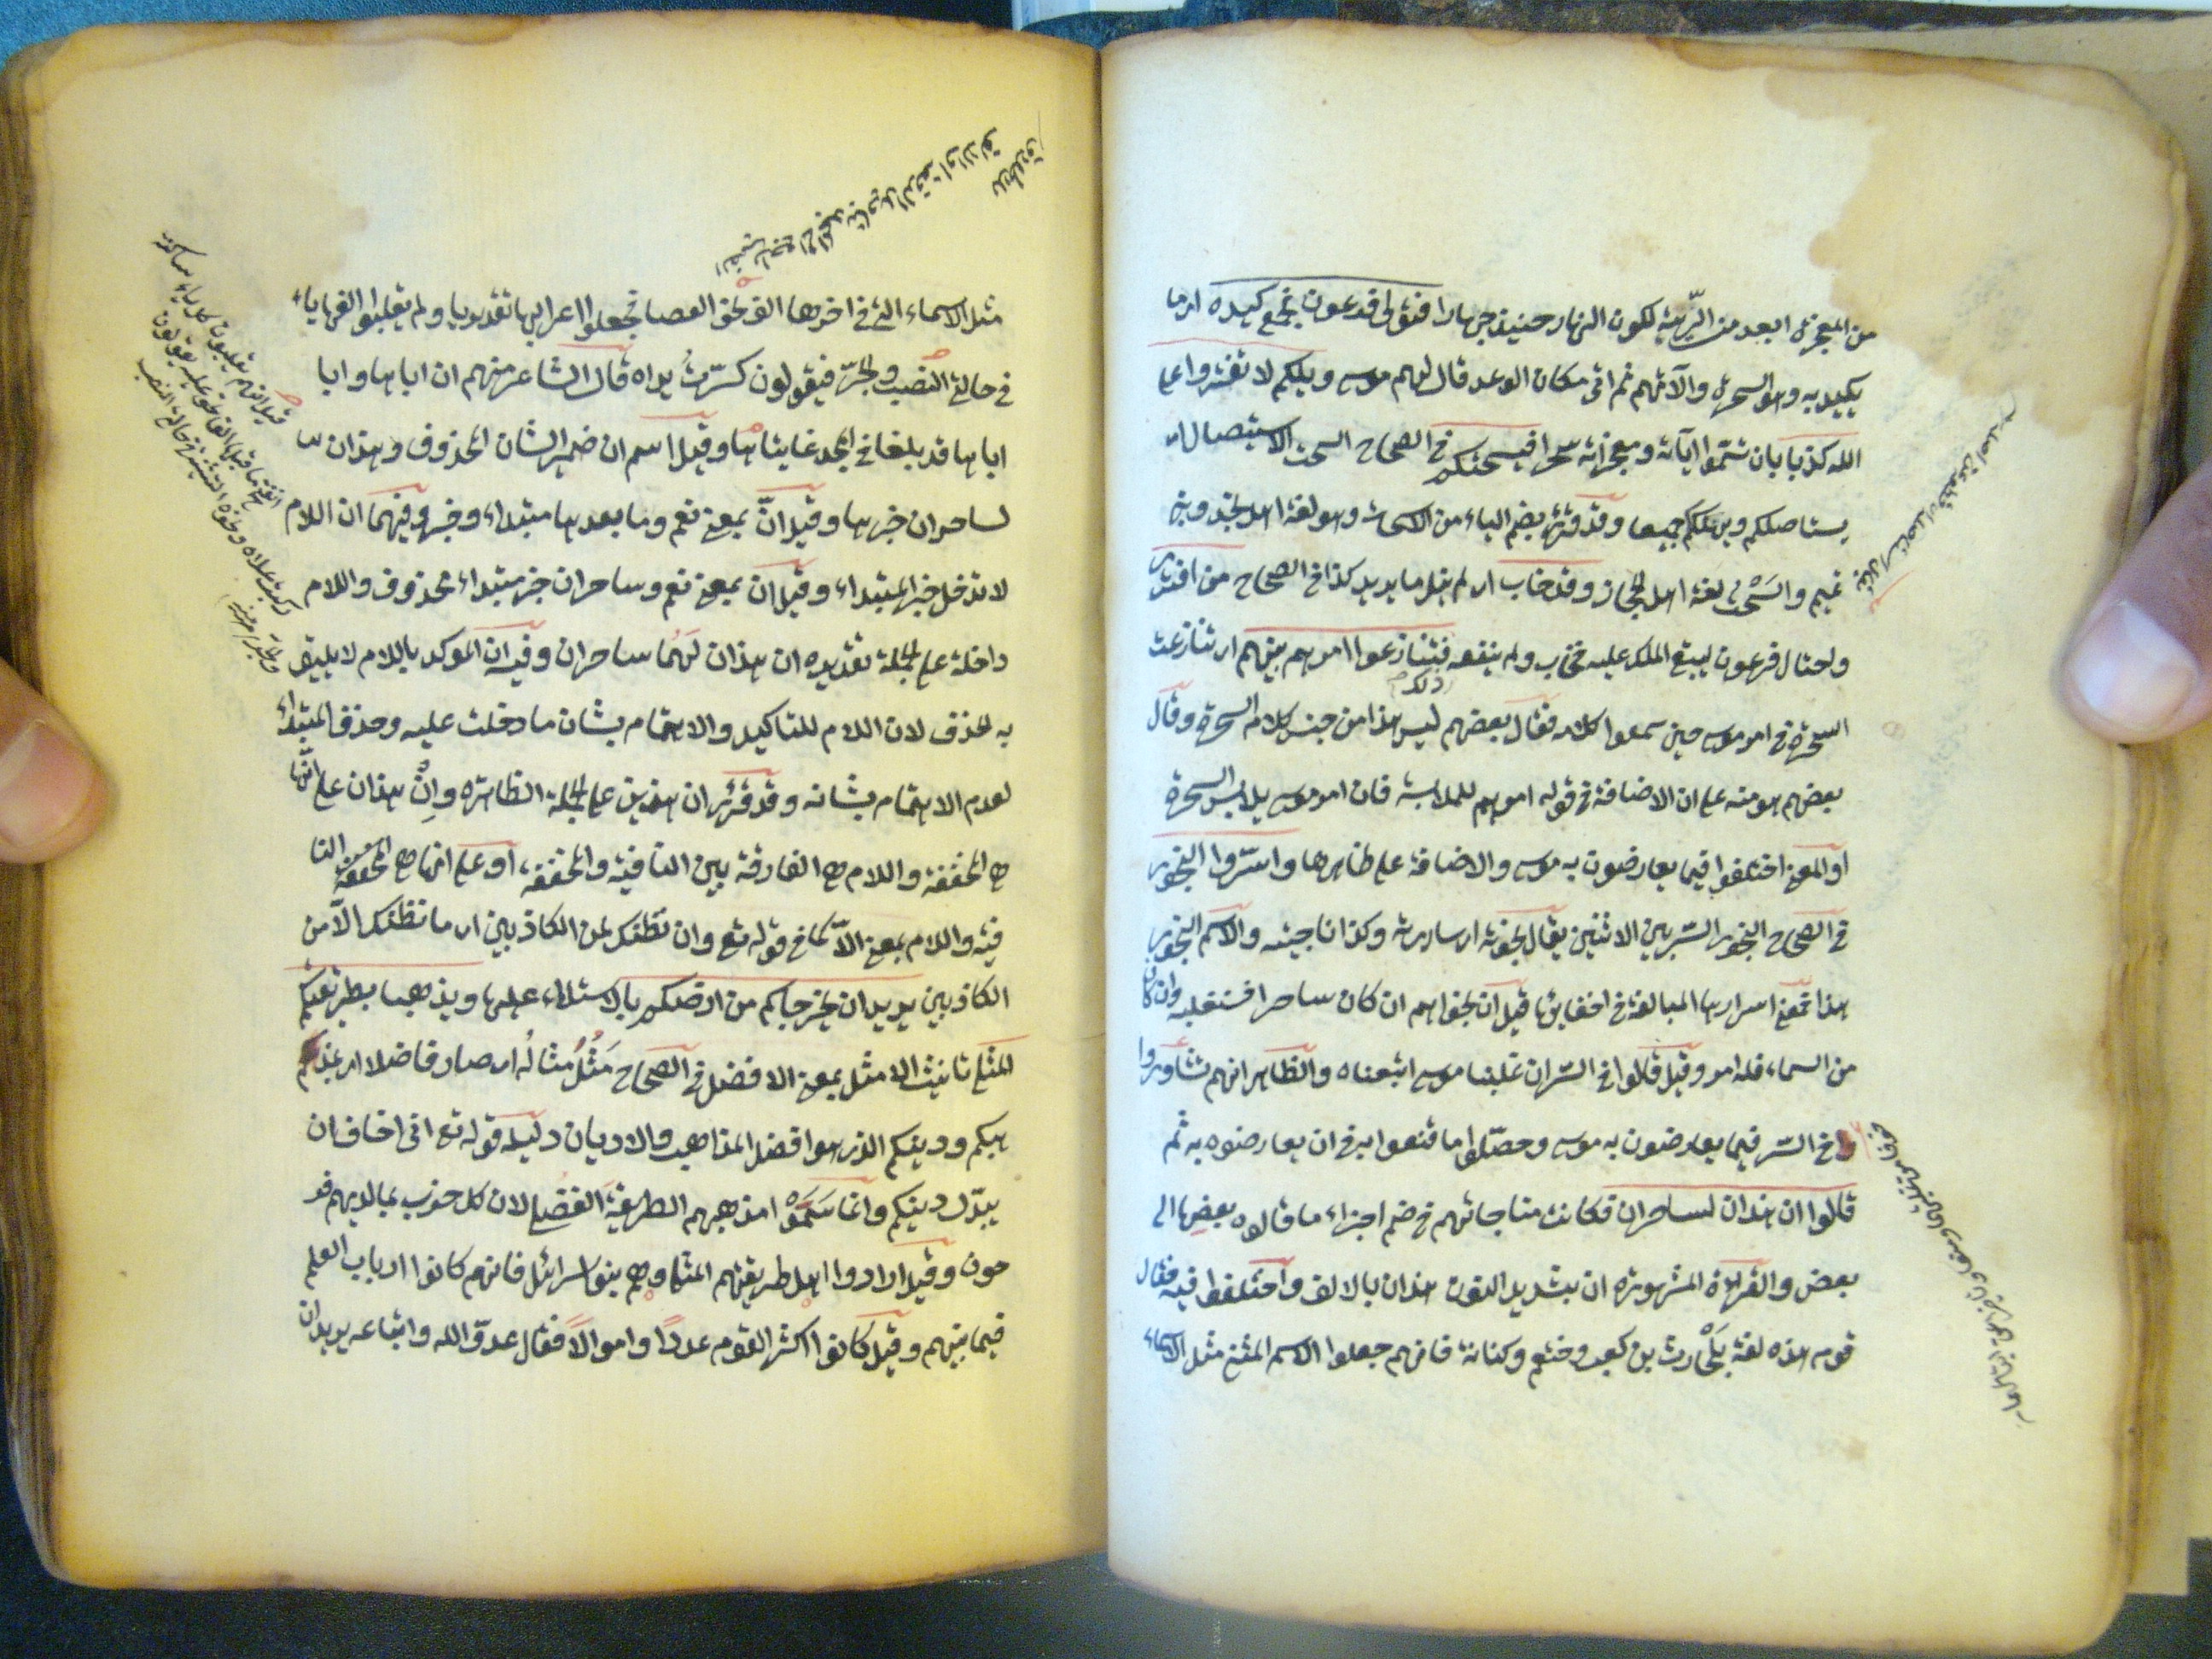 من المعجزة ابعد من الريبة لكون النهار حينئذ جهارا فتولى فرعون فجمع كيده اى ما
يكيد به وهو السحرة والآتهم ثم اتى مكان الوعد قال لهم موسى ويلكم لا تفتروا على
الله كذبا بان تسموا آياته ومعجزاته سحرا فيسحتكم فى الصحاح السحت الاستيصال اى
يستاصلكم ويهلككم جميعا وقد قرئ بضم الياء من الاسحات وهو لغة اهل نجد وبنى
تميم والسَّحْت لغة اهل الحجاز وقد خاب اى لم ينل ما يريد كذا فى الصحاح من افترى
واحتال فرعون ليبقى الملك عليه فخاب ولم ينفعه فتنازعوا امرهم بينهم اى تنازعت
السحرة فى امر موسى حين سمعوا كلامه فقال بعضهم ليس هذا من جنس كلام السحرة وقال
ذلك
بعضهم هو منه على ان الاضافة فى قوله امرهم للملابسة فان امر موسى يلابس السحرة
او المعنى اختلفوا فيما يعارضون به موسى والاضافة على ظاهرها واسرّوا النجوى
فى الصحاح النجوى السر بين الاثنين يقال نجوته اى ساررته وكذا ناجيته والاسم النجوى
هذا فمعنى اسرارها المبالغة فى اخفائها قيل ان نجواهم ان كان ساحرا فسنغلبه وان كان
من السماء فله امر وقيل قالوا فى السر ان غلبنا موسى اتبعناه والظاهر انهم تشاوروا
فى السر فيما يعارضون به موسى وحصّلوا ما قنعوا به فى ان يعارضوه به ثم
قالوا ان هذان لساحران فكانت مناجاتهم فى ضم اجزاء ما قالوه بعضها الى
بعض والقراءة المشهورة ان بتشديد النون هذان بالالف واختلفوا فيه فقال
قوم هذه لغة بَلْحارث بن كعب وخثعم وكنانة فانهم جعلوا الاسم المثنى مثل الاسماء
مثل الاسماء التى فى اخرها الف نحو العصا فجعلوا اعرابها تقديريا ولم يقلبوا الفها ياء
فى حالة النصب والجرّ فيقولون كسرتُ يداه قال الشاعر منهم ان اباها وابا
اباها قد بلغا فى المجد غايتاها وقيل اسم ان ضمير الشان المحذوف وهذان
لساحران خبرها وقيل انّ بمعنى نعم وما بعدها مبتداء وخبر وفيهما ان اللام
لا تدخل خبر المبتداء وقيل ان بمعنى نعم وساحران خبر مبتداء محذوف واللام
داخلة على الجملة تقديره ان هذان لَهُما ساحران وفيه ان الموكد باللام لا يليق
به الحذف لان اللام للتاكيد والاهتمام بشان ما دخلت عليه وحذف المبتداء
لعدم الاهتمام بشانه وقد قرئ ان هذين على الجملة الظاهرة وانْ هذان على انّها
هى المخففة واللام هى الفارقة بين النافية والمخففة، او على انها هى المخففة النا
فية واللام بمعنى الاّ كما فى قوله تع وان نظنك لمن الكاذبين اى ما نظنك الا من
الكاذبين يريدان ان يخرجاكم من ارضكم بالاستلاء عليها ويذهبا بطريقتكم
المثلى تانيث الامثل بمعنى الافضل فى الصحاح مَثُلَ مثالُه اى صار فاضلا اى بمذ
هبكم ودينكم الذى هو افضل المذاهب والاديان دليله قوله تع انى اخاف ان
يبدّل دينكم وانما سَمَّوْا مذهبهم الطريقةَ الفضلى لان كل حزب بما لديهم فر
حون وقيل ارادوا اهل طريقتهم المثلى وهم بنو اسرائل فانهم كانوا ارباب العلم
فيما بينهم وقيل كانوا اكثر القوم عددًا واموالًا فقال عدوّ الله واتباعه يريدان